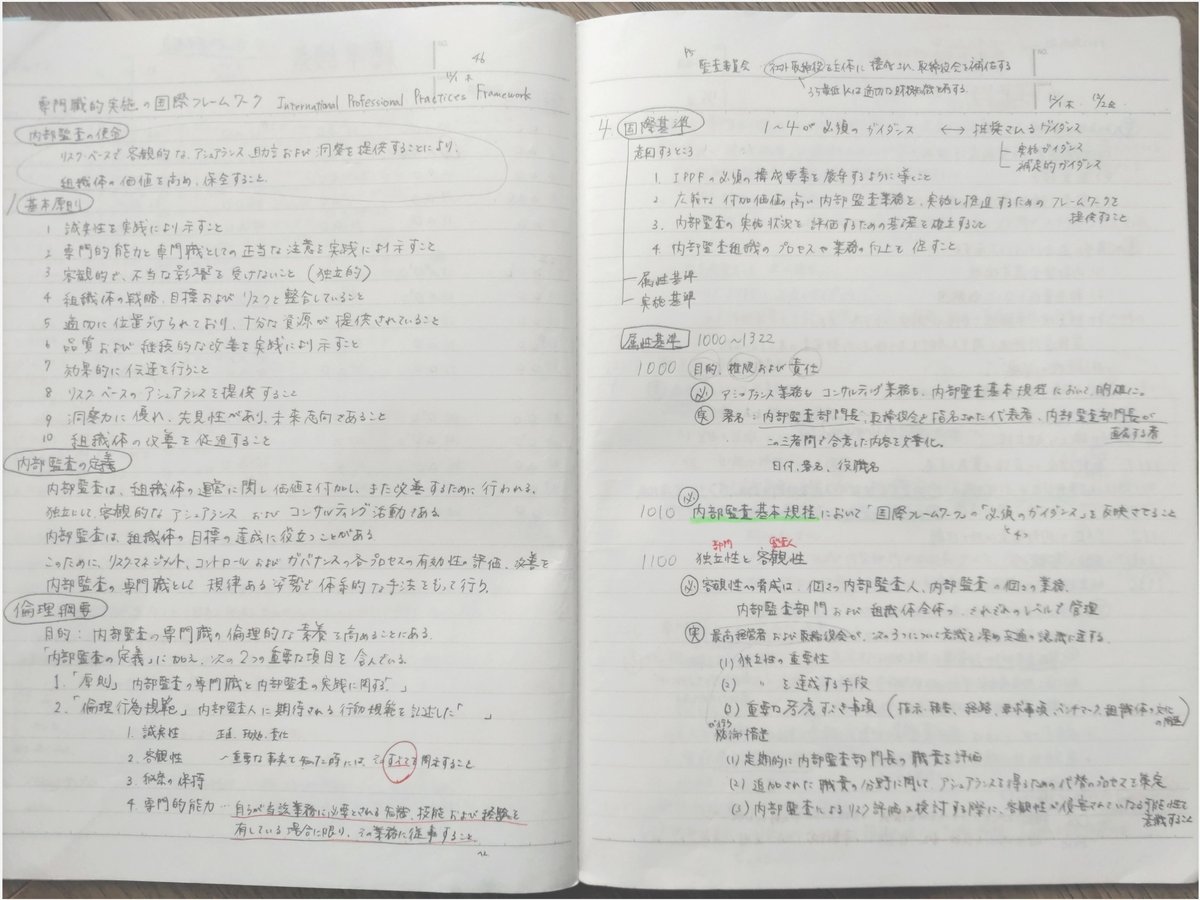 46
12/1 木
専門職的実施の国際フレームワーク International Professional Practices Framework
内部監査の使命
リスク・ベースで客観的な、アシュアランス、助言および洞察を提供することにより、
組織体の価値を高め、保全すること。
1 基本原則
1 誠実性を実践により示すこと
2 専門的能力と専門職としての正当な注意を実践により示すこと
3 客観的で、不当な影響を受けないこと (独立的)
4 組織体の戦略、目標およびリスクと整合していること
5 適切に位置づけられており、十分な資源が提供されていること
6 品質および継続的な改善を実践により示すこと
7 効果的に伝達を行うこと
8 リスク・ベースのアシュアランスを提供すること
9 洞察力に優れ、先見性があり、未来志向であること
10 組織体の改善を促進すること
内部監査の定義
内部監査は、組織体の運営に関し価値を付加し、また改善するために行われる、
独立にして、客観的なアシュアランス および コンサルティング活動である
内部監査は、組織体の目標の達成に役立つことがある
このために、リスクマネジメント、コントロールおよびガバナンスの各プロセスの有効性の評価、改善を
内部監査の専門職として規律ある姿勢で体系的な手法をもって行う。
倫理綱要
目的: 内部監査の専門職の倫理的な素養を高めることにある。
「内部監査の定義」に加え、次の2つの重要な項目を含んでいる
1.「原則」 内部監査の専門職と内部監査の実践に関する「 」
2.「倫理行為規範」 内部監査人に期待される行動規範を記述した「 」
1. 誠実性 正直
2. 客観性 ー重要な事実を知った時には、そのすべてを開示すること
3. 秘密の保持
4. 専門的能力 … 自らが当該業務に必要とされる知識、技能および経験を
有している場合に限り、その業務に従事すること。
P5
監査委員会 社外取締役を主体に構成され、取締役会を補佐する
うち単位1人は適切な財務知識を有する
12/1 木 12/2 金
4. 国際基準 1〜4が必須のガイダンス ↔ 推奨されるガイダンス
実施ガイダンス
補足的ガイダンス
意図するところ
1. IPPFの必須の構成要素を厳守するように導くこと
2. 広範な付加価値の高い内部監査業務を、実施し推進するためのフレームワークを
提供すること
3. 内部監査の実施状況を評価するための基礎を確立すること
4. 内部監査組織のプロセスや業務の向上を促すこと
属性基準
実施基準
属性基準 1000〜1322
1000 目的、権限および責任
必 アシュアランス業務も コンサルティング業務も、内部監査基本規程において、明確に。
実 署名:内部監査部門長、取締役会に指名された代表者、内部監査部門長が
直属する者
この三者間で合意した内容を文書化。
日付、署名、役職名
必
1010 内部監査基本規程において「国際フレームワーク」の「必須のガイダンス」を反映させること
4つ
部門 監査人
1100 独立性と客観性
必 客観性への脅威は、個々の内部監査人、内部監査の個々の業務、
内部監査部門および組織体全体の、それぞれのレベルで管理
実 最高経営者および取締役会が、次の3つについて意識を深め、共通の認識に達する。
(1) 独立性の重要性
(2) 〃 を達成する手段
(3) 重要な考慮すべき事項 (指示・報告、経路、要求事項、ベンチマーク、組織体の文化の問題)
防御措置
(1) 定期的に内部監査部門長の職責を評価
(2) 追加された職責の分野に関してアシュアランスを得るための代替のプロセスを策定
(3) 内部監査によるリスク評価を検討する際に、客観性が侵害されている可能性を
意識すること